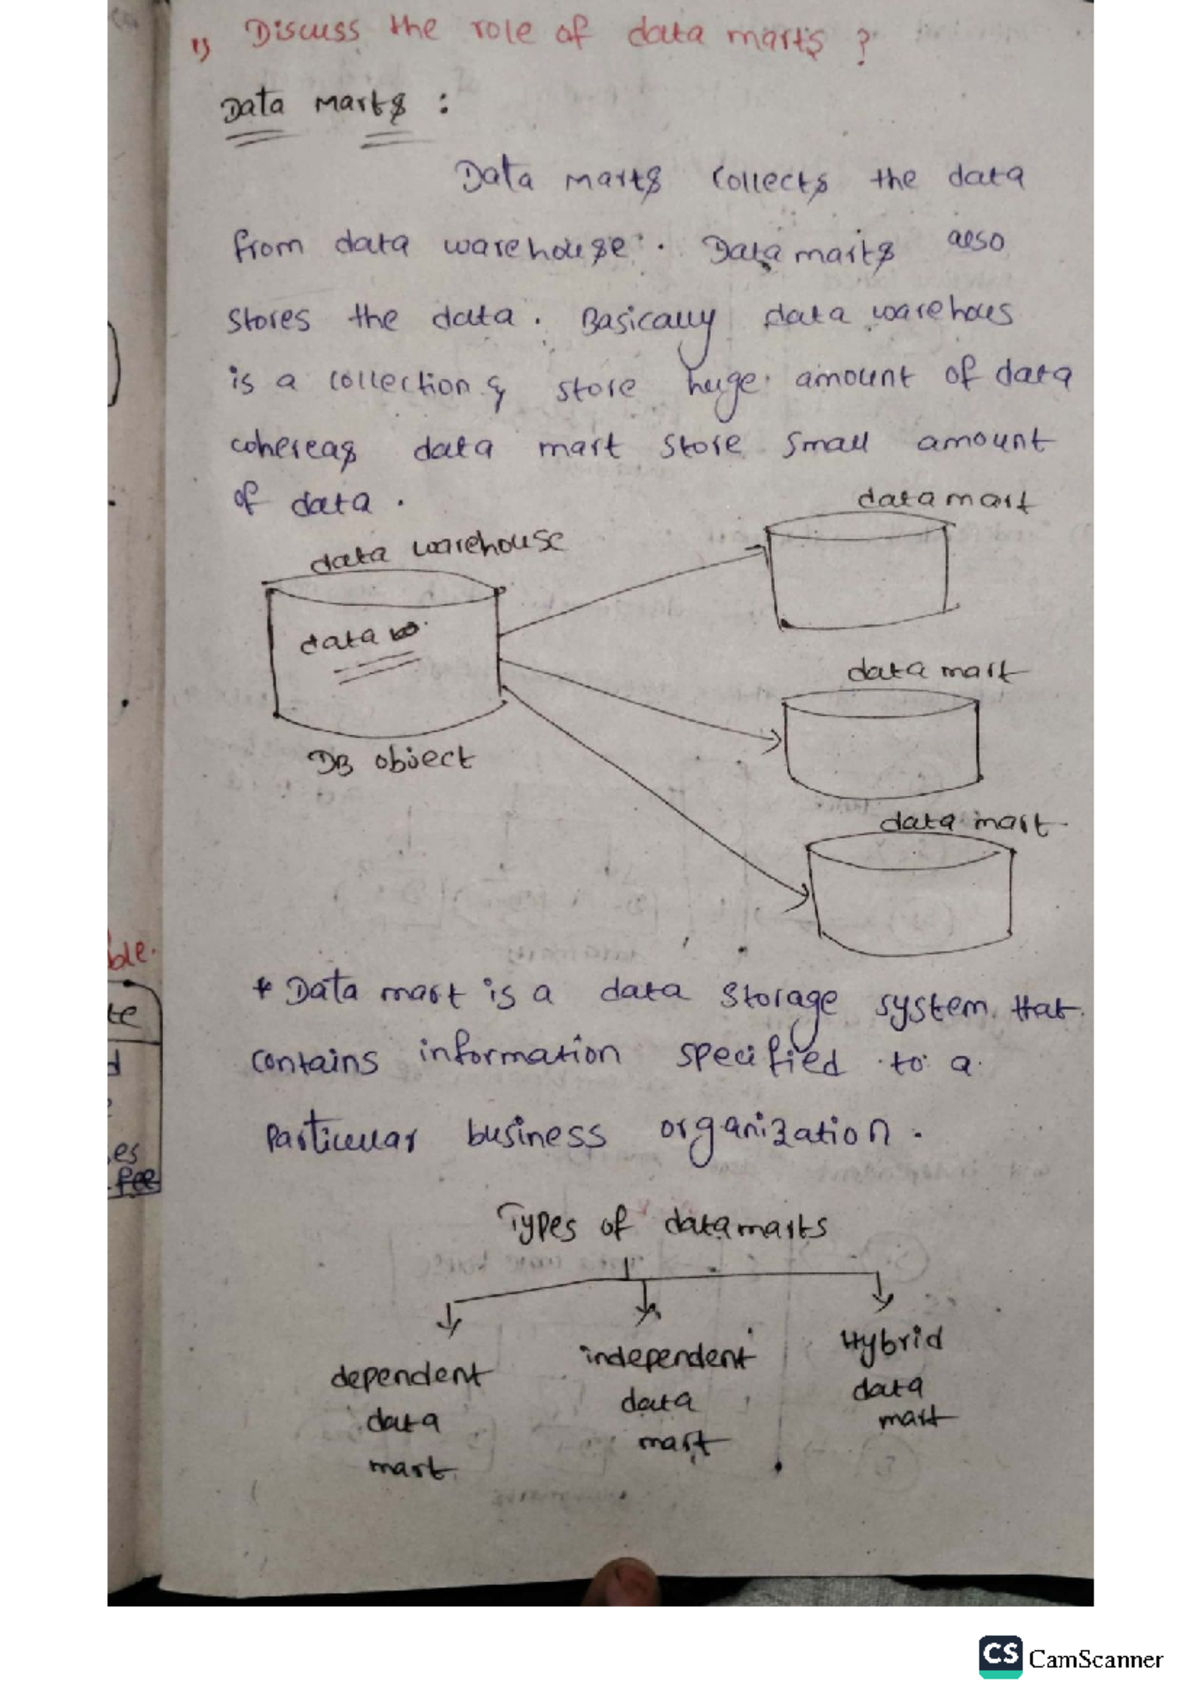 1) Discuss the role of data marts ?
Data marts :
Data marts collects the data
from data warehouse . Data marts also
stores the data . Basically data warehous
is a collection & store huge amount of data
whereas data mart store small amount
of data .
data mart
data warehouse
data w.
data mart
DB object
data mart
* Data mart is a data storage system that
contains information specified to a
particular business organization .
Types of data marts
dependent
data
mart
independent
data
mart
Hybrid
data
mart
ble.
te
d
es
fee
CS CamScanner